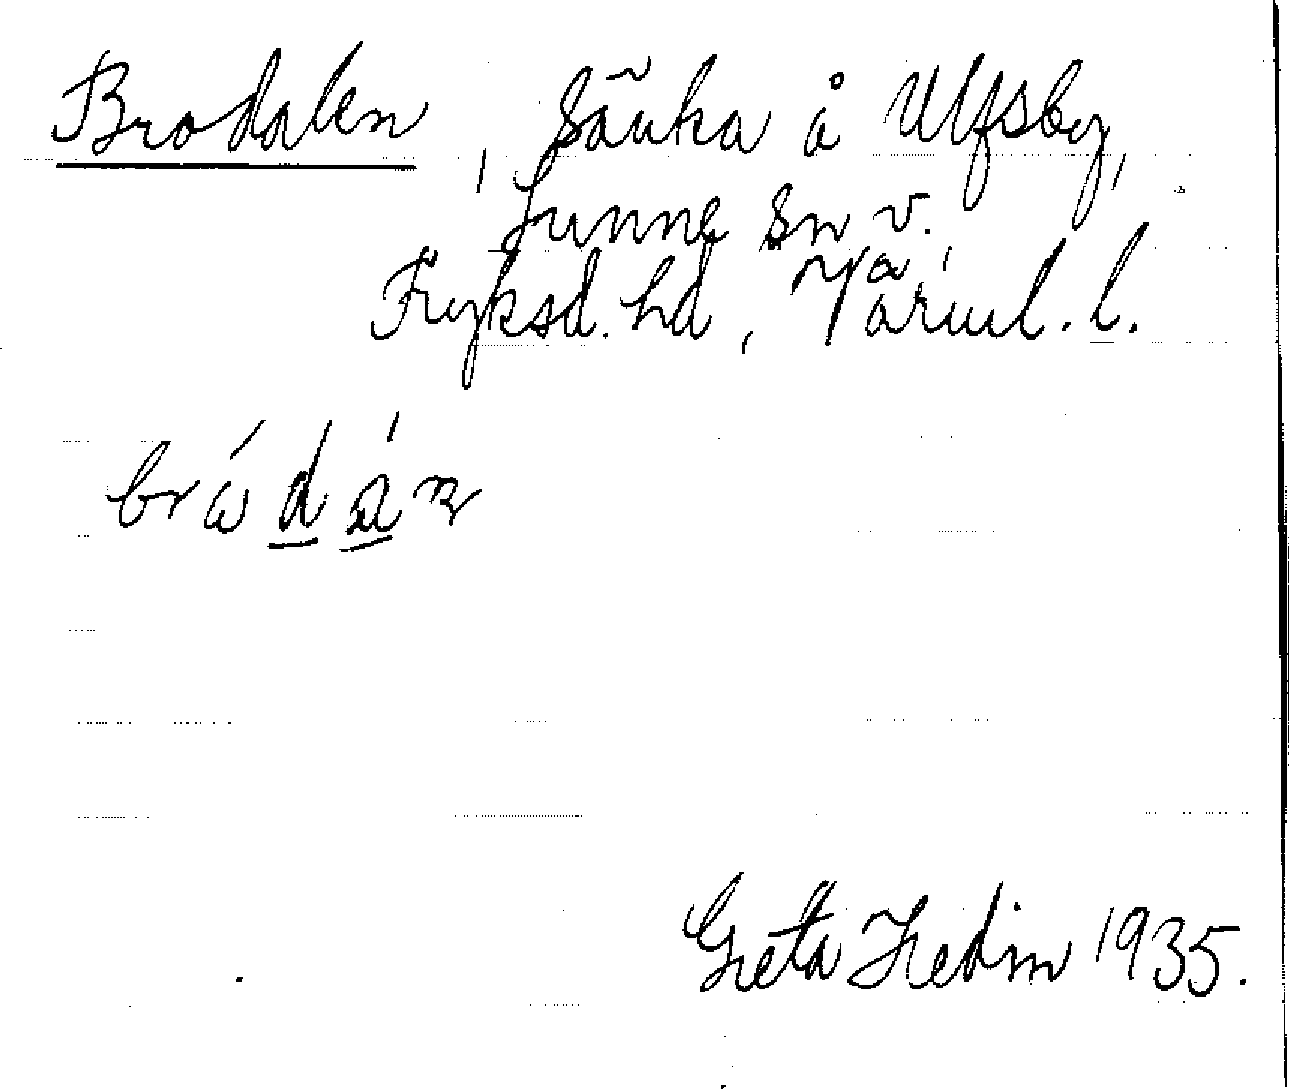 Brodalen, sänka å Ulfsby,
Sunne sn v.
Fryksd. hd, Värml. l.
Greta Hedin 1935.